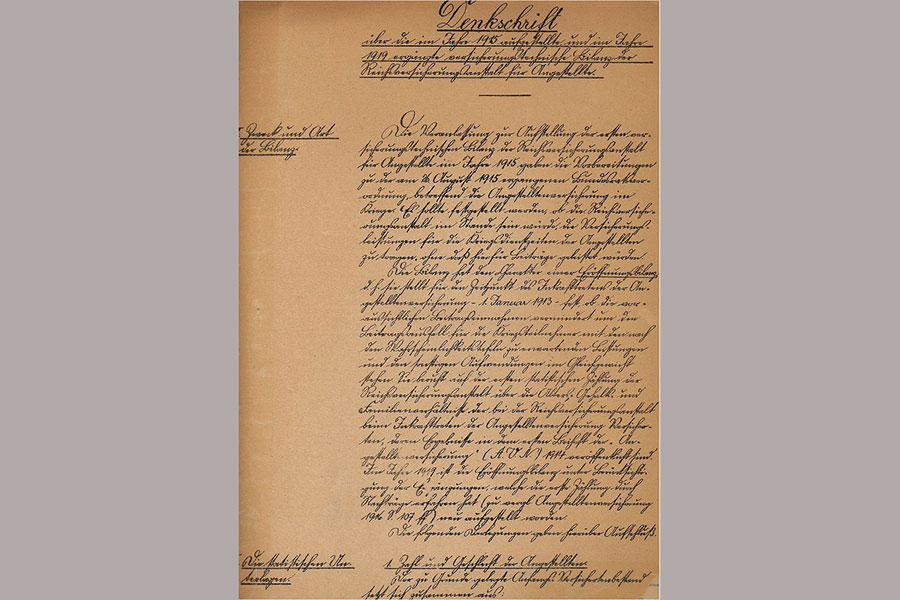 Denkschrift
über die im Jahre 1915 aufgestellte und im Jahre
1919 ergänzte versicherungstechnische Bilanz der
Reichsversicherungsanstalt für Angestellte.
Zweck und Art
der Bilanz.
Die Veranlassung zur Aufstellung der ersten ver-
sicherungstechnischen Bilanz der Reichsversicherungsanstalt
für Angestellte im Jahre 1915 gaben die Vorbereitungen
zu der am 26. August 1915 ergangenen Bundesratsver-
ordnung, betreffend die Angestelltenversicherung im
Kriege. Es sollte festgestellt werden, ob die Reichsversiche-
rungsanstalt im Stande sein würde, die Versicherungs-
leistungen für die Kriegsdienstzeiten der Angestellten
zu tragen, ohne daß hierfür Beiträge geleistet würden.
Die Bilanz hat den Charakter einer Eröffnungsbilanz,
d.h. sie stellt für den Zeitpunkt des Inkrafttretens der An-
gestelltenversicherung - 1. Januar 1913 - fest, ob die vor-
aussichtlichen Beitragseinnahmen vermindert um den
Beitragsausfall für die Kriegsteilnehmer mit den nach
den Wahrscheinlichkeitstafeln zu erwartenden Leistungen
und den sonstigen Aufwendungen im Gleichgewicht
stehen. Sie beruht auf der ersten statistischen Zählung der
Reichsversicherungsanstalt über die Alters-, Gehalts- und
Familienverhältnisse der bei der Reichsversicherungsanstalt
beim Inkrafttreten der Angestelltenversicherung Versicher-
ten, deren Ergebnisse in dem ersten Beiheft der „An-
gestelltenversicherung" (A.V.N.) 1914 veröffentlicht sind.
Im Jahre 1919 ist die Eröffnungsbilanz unter Berücksichti-
gung der Ergänzungen, welche die erste Zählung durch
Nachträge erfahren hat (zu vergl. Angestelltenversicherung
S. 107 ff) neu aufgestellt worden.
Die folgenden Darlegungen geben hierüber Aufschluß.
Die statistischen Un-
terlagen.
1. Zahl und Geschlecht der Angestellten.
Der zu Grunde gelegte Anfangs-Versichertenbestand
setzt sich zusammen aus: